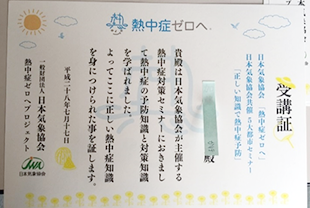 熱中症ゼロへ
受講証
日本気象協会「熱中症ゼロへ」
日本気象協会共催 5大都市セミナー
「正しい知識で熱中症予防」
殿
貴殿は日本気象協会が主催する
熱中症対策セミナーにおきまし
て熱中症の予防知識と対策知識
を学ばれました。
よってここに正しい熱中症知識
を身につけられた事を証します。
平成二十八年七月十七日
一般財団法人 日本気象協会
熱中症ゼロへプロジェクト
JWA
日本気象協会